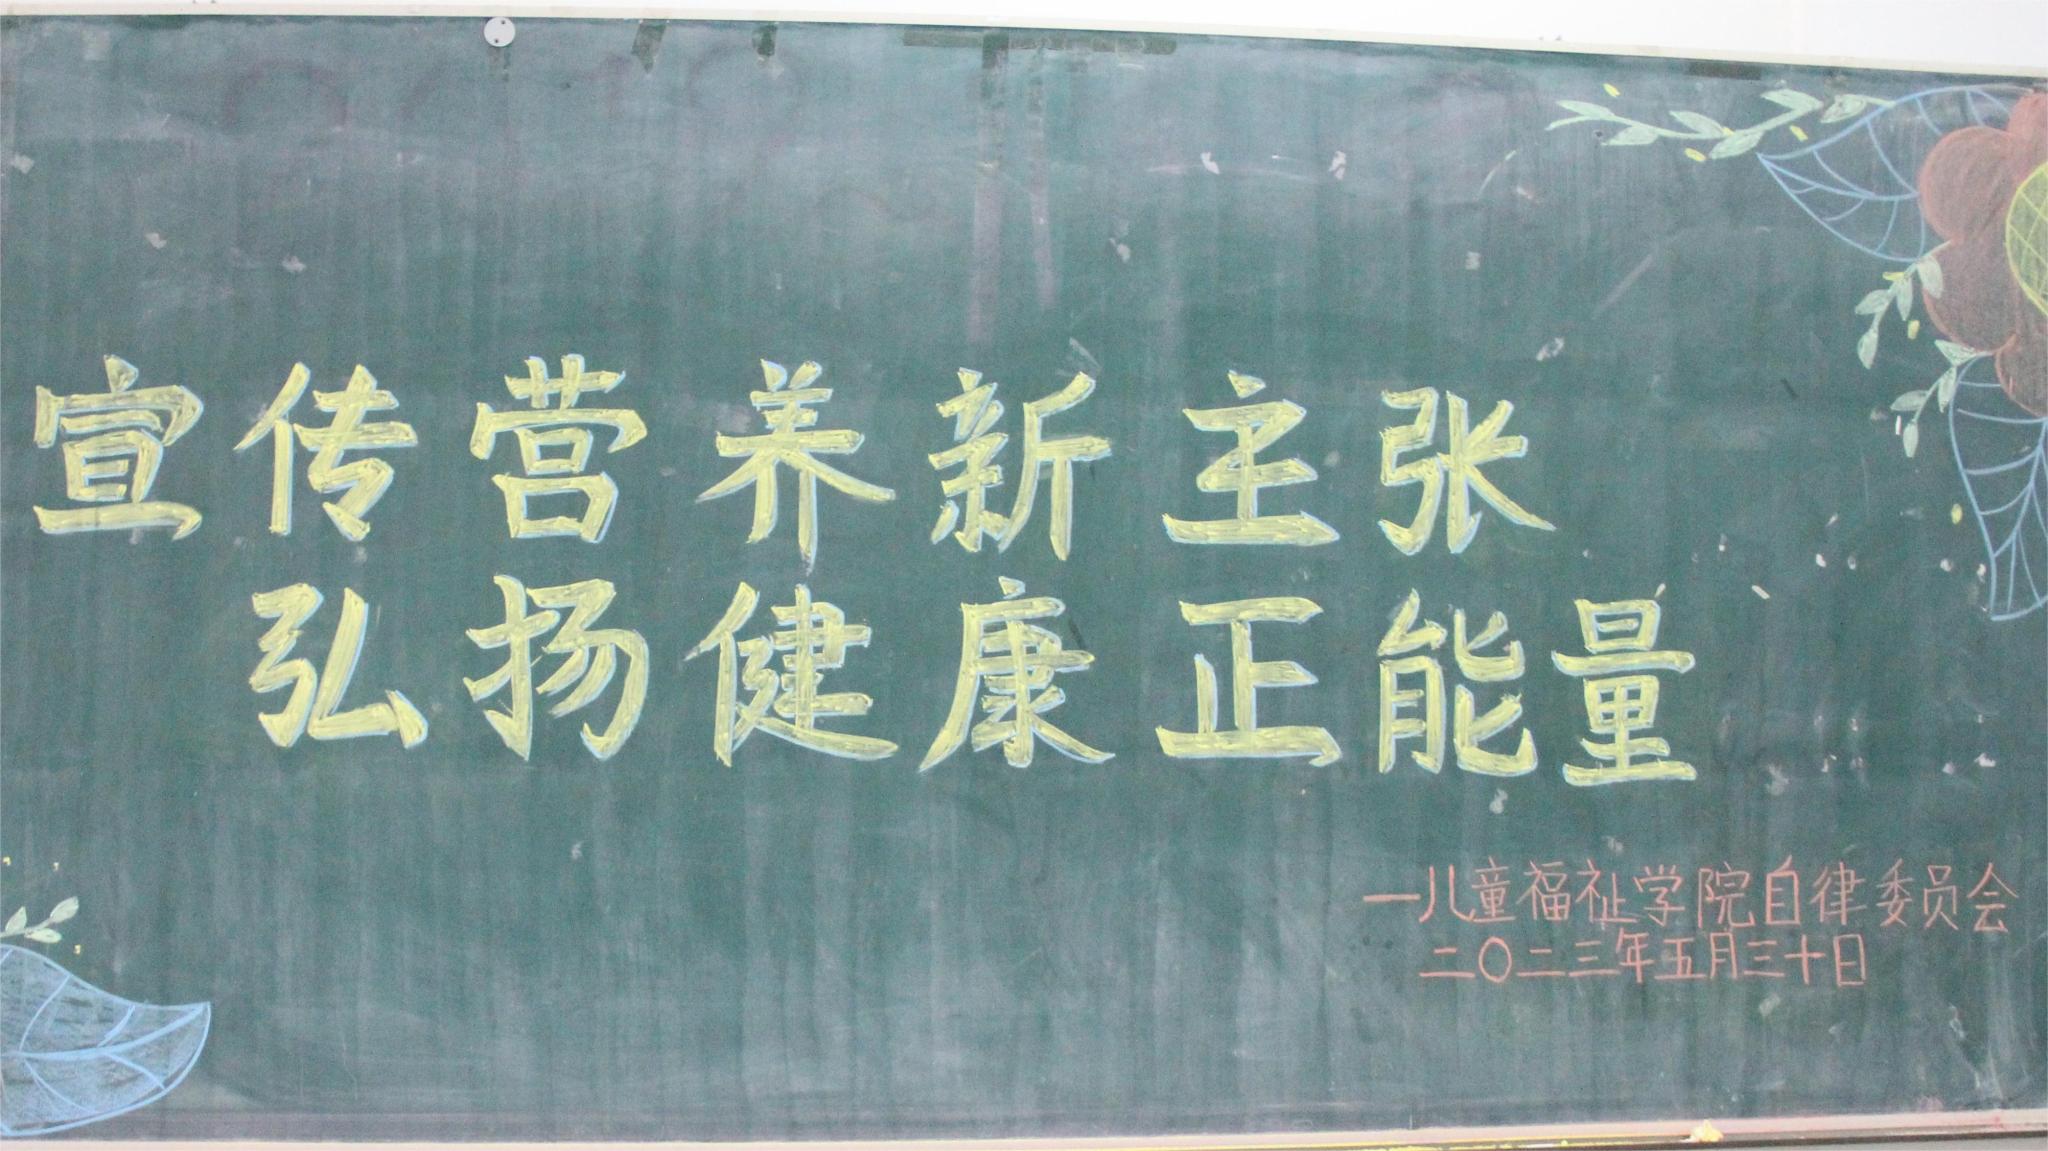 宣传营养新主张
弘扬健康正能量
一儿童福祉学院自律委员会
二〇二三年五月三十日